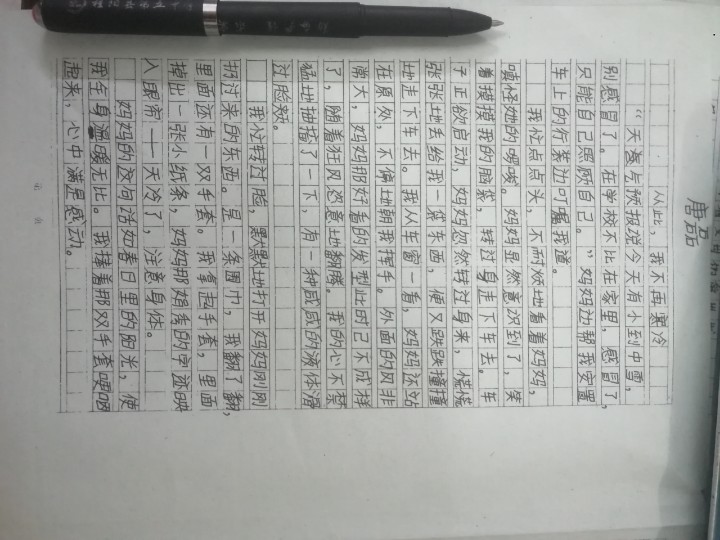 唐磊
从此，我不再寒冷
“天气预报说今天有小到中雪，
别感冒了。在学校不比在家里，感冒了，
只能自己照顾自己。”妈妈边帮我安置
车上的行装边叮嘱我道。
我忙点点头，不耐烦地看着妈妈，
嗔怪她的啰嗦。妈妈显然意识到了，笑
着摸摸我的脸袋，转过身走下车去。车
子正欲启动，妈妈忽然转过身来，慌慌
张张地丢给我一袋东西，便又跌跌撞撞
地走下车去。我从车窗一看，妈妈还站
在原处，不停地朝我挥手。外面的风非
常大，妈妈那好看的发型此时已不成样
了，随着狂风恣意地翻腾。我的心不禁
猛地抽搐了一下，有一种咸咸的液体滑
过脸颊。
我忙转过脸，默默地打开妈妈刚刚
扔过来的东西。是一条围巾，我翻了翻，
里面还有一双手套。我拿起手套，里面
掉出一张小纸条，妈妈那娟秀的字迹映
入眼帘——天冷了，注意身体。
妈妈的这句话如春日里的阳光，使
我全身温暖无比。我捧着那双手套哽咽
起来，心中满是感动。